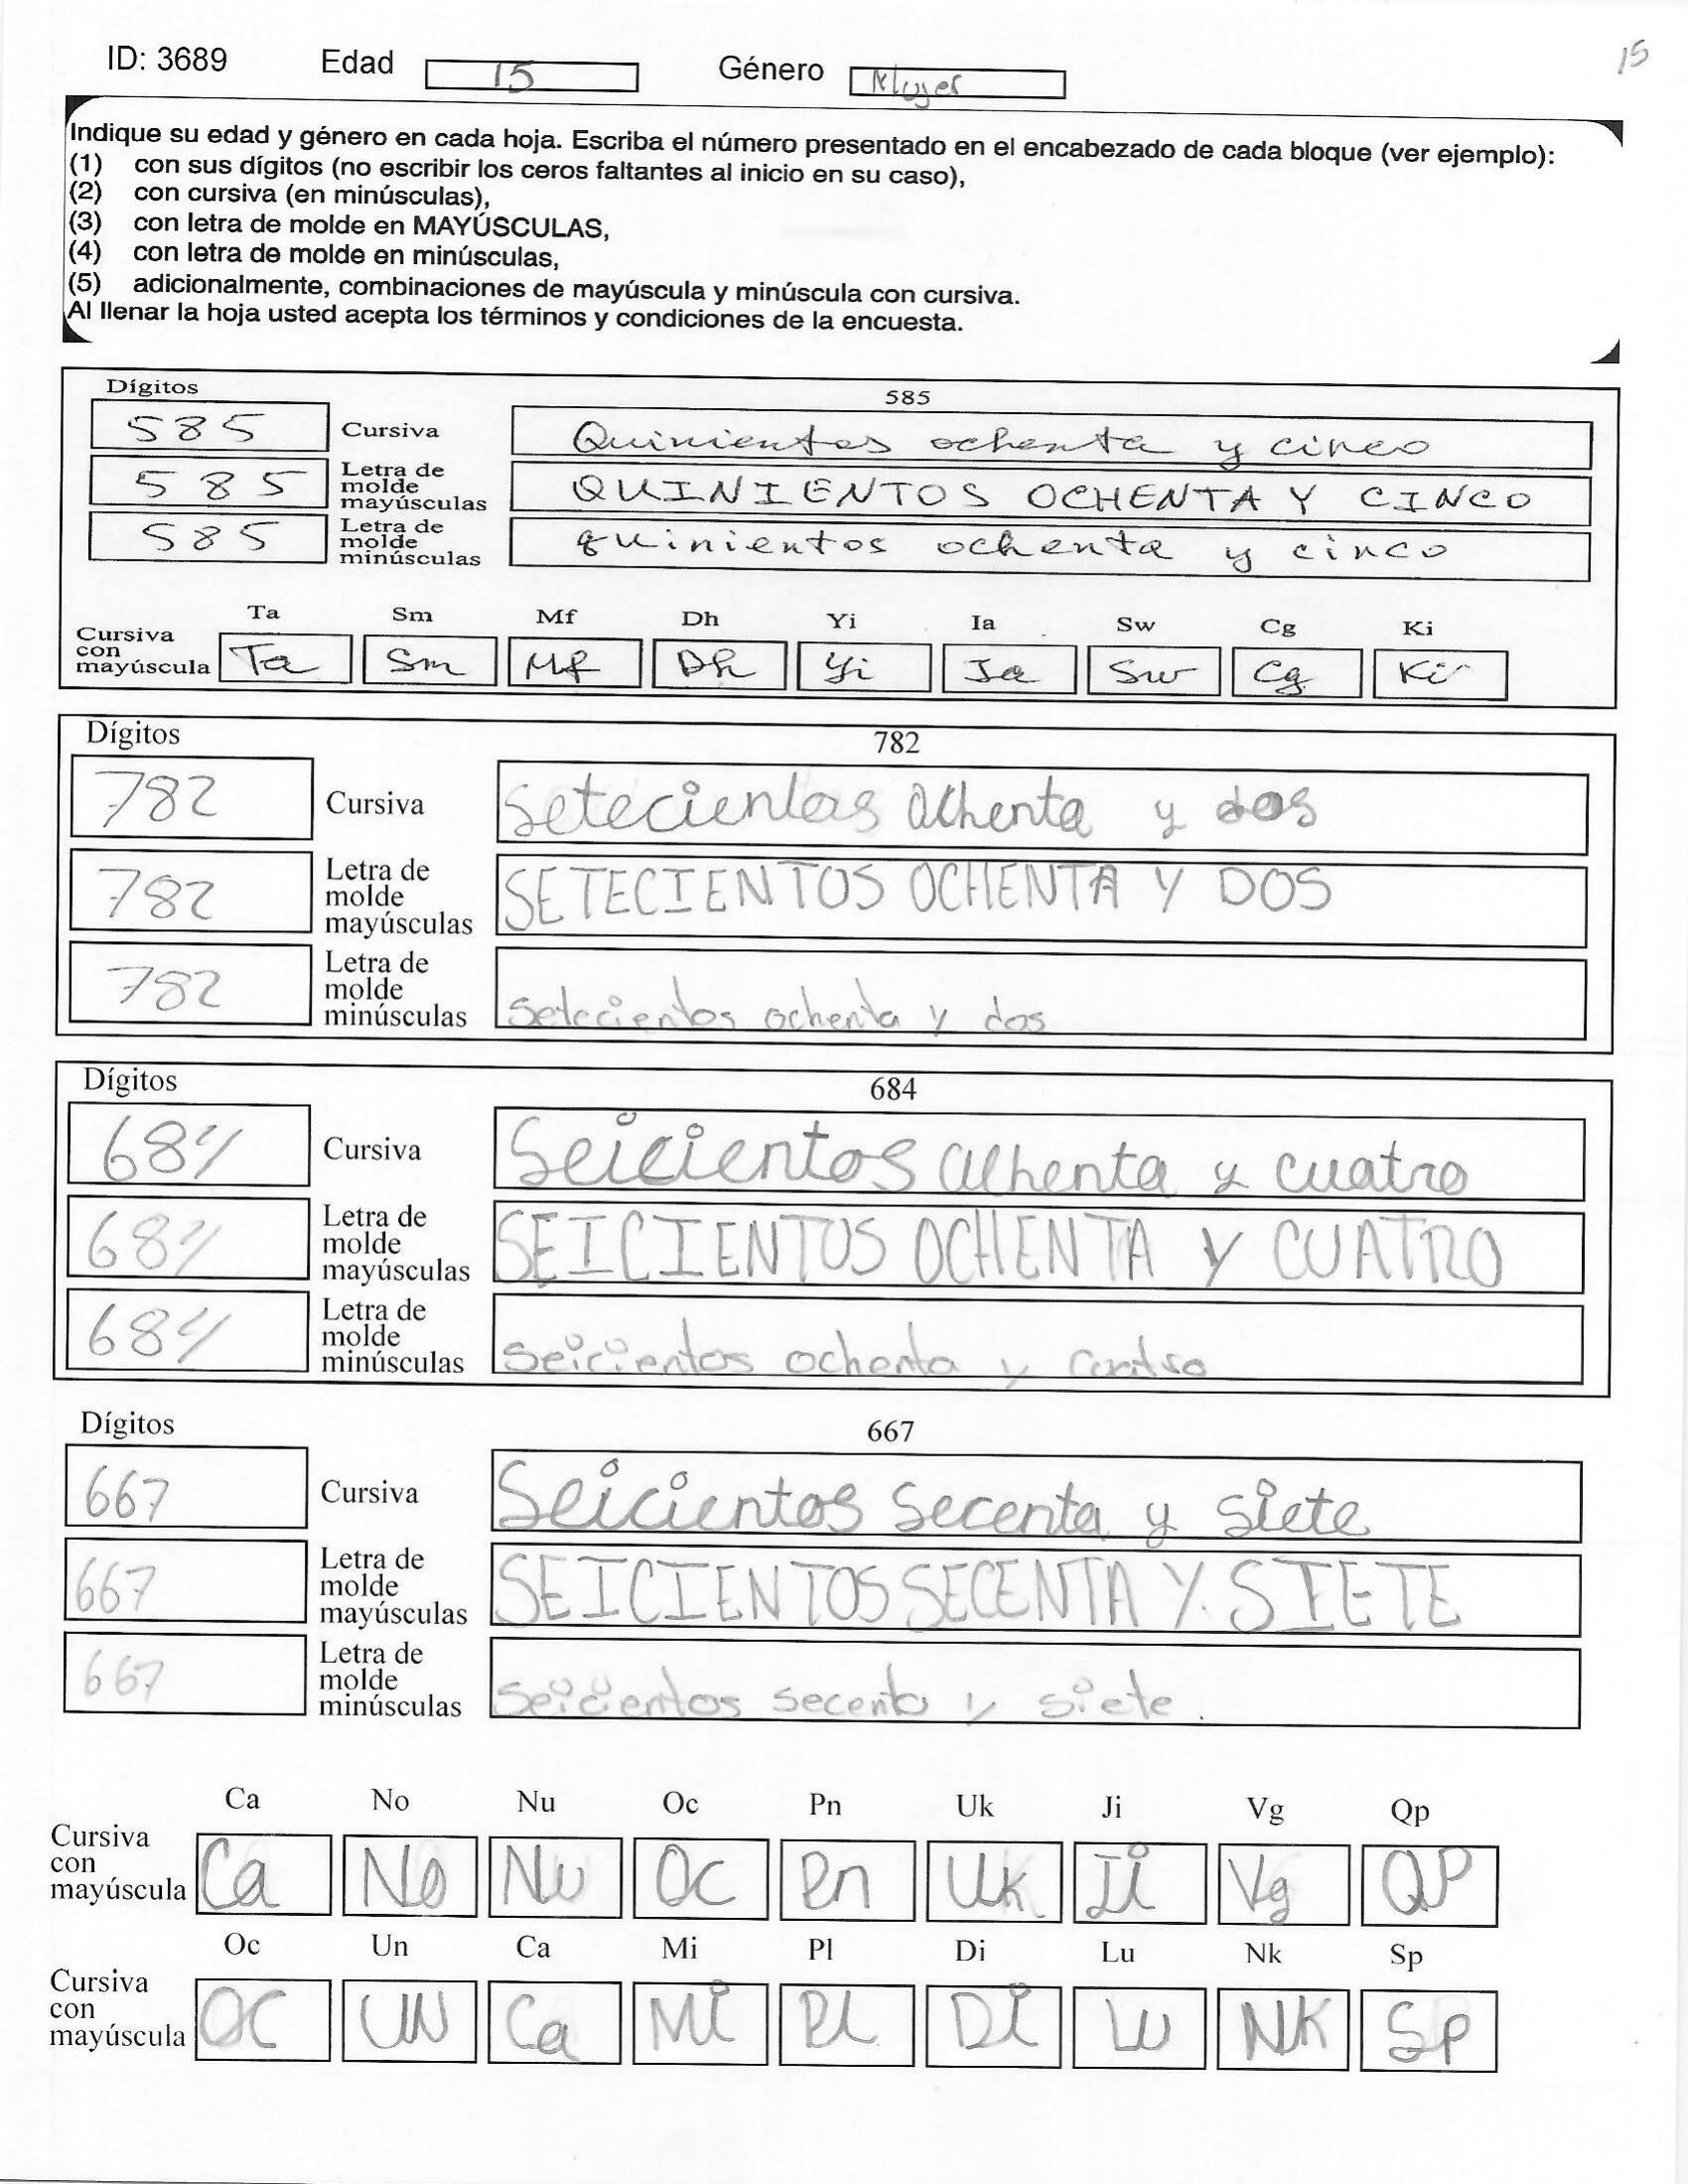 ID: 3689 Edad 15 Género Mujer 15
Indique su edad y género en cada hoja. Escriba el número presentado en el encabezado de cada bloque (ver ejemplo):
(1) con sus dígitos (no escribir los ceros faltantes al inicio en su caso),
(2) con cursiva (en minúsculas),
(3) con letra de molde en MAYÚSCULAS,
(4) con letra de molde en minúsculas,
(5) adicionalmente, combinaciones de mayúscula y minúscula con cursiva.
Al llenar la hoja usted acepta los términos y condiciones de la encuesta.
Dígitos 585
585 Cursiva Quinientos ochenta y cinco
585 Letra de molde mayúsculas QUINIENTOS OCHENTA Y CINCO
585 Letra de molde minúsculas quinientos ochenta y cinco
Ta Sm Mf Dh Yi Ia Sw Cg Ki
Cursiva con mayúscula Ta Sm Mf Dh Yi Ia Sw Cg Ki
Dígitos 782
782 Cursiva Setecientos ochenta y dos
782 Letra de molde mayúsculas SETECIENTOS OCHENTA Y DOS
782 Letra de molde minúsculas setecientos ochenta y dos
Dígitos 684
684 Cursiva Seicientos ochenta y cuatro
684 Letra de molde mayúsculas SEICIENTOS OCHENTA Y CUATRO
684 Letra de molde minúsculas seicientos ochenta y cuatro
Dígitos 667
667 Cursiva Seicientos secenta y siete
667 Letra de molde mayúsculas SEICIENTOS SECENTA Y SIETE
667 Letra de molde minúsculas seicientos secenta y siete.
Ca No Nu Oc Pn Uk Ji Vg Qp
Cursiva con mayúscula Ca No Nu Oc Pn Uk Ji Vg QP
Oc Un Ca Mi Pl Di Lu Nk Sp
Cursiva con mayúscula OC UN Ca Mi Pl Di Lu NK Sp